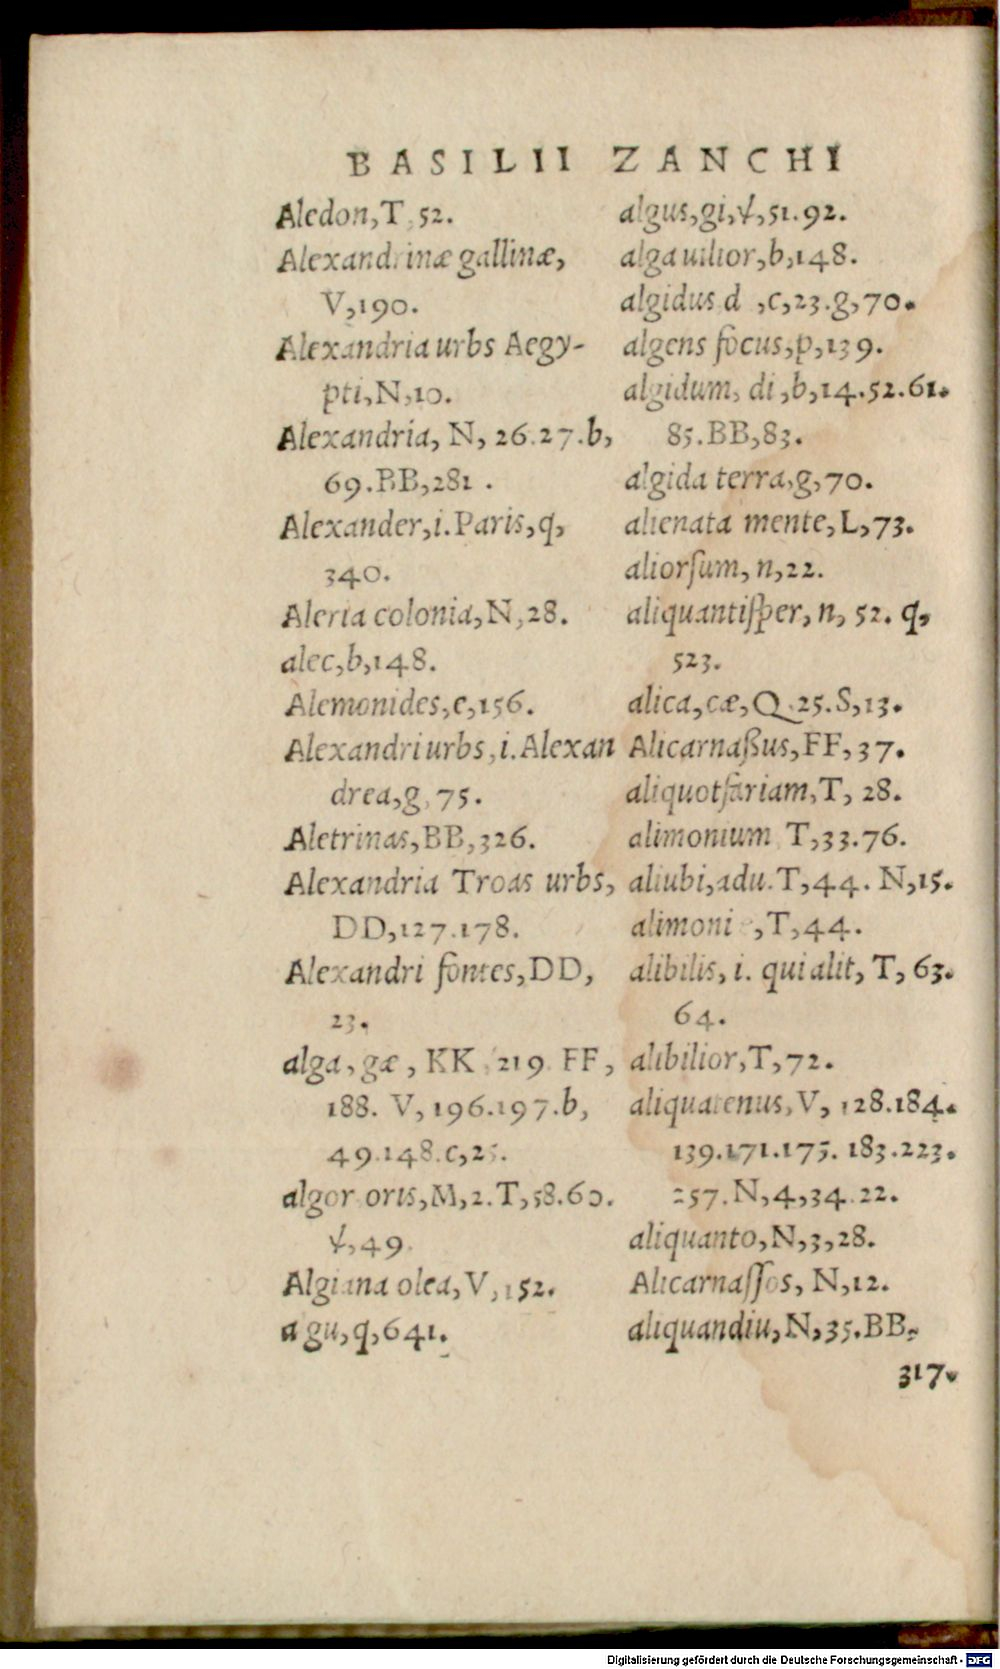 BASILII ZANCHI
Aledon, T, 52.
Alexandrinæ gallinæ,
V, 190.
Alexandria urbs Aegy-
pti, N, 10.
Alexandria, N, 26.27.b,
69.BB, 281.
Alexander, i. Paris, q,
340.
Aleria colonia, N, 28.
alec, b, 148.
Alemonides, c, 156.
Alexandri urbs, i. Alexan
drea, g, 75.
Aletrinas, BB, 326.
Alexandria Troas urbs,
DD, 127.178.
Alexandri fontes, DD,
23.
alga, gæ, KK, 219 FF,
188. V, 196.197.b,
49.148.c, 25.
algor oris, M, 2. T, 58.60.
ψ, 49.
Algiana olea, V, 152.
a gu, q, 641.
algus, gi, ψ, 51.92.
alga uilior, b, 148.
algidus d , c, 23.g, 70.
algens focus, p, 139.
algidum, di, b, 14.52.61.
85.BB, 83.
algida terra, g, 70.
alienata mente, L, 73.
aliorſum, n, 22.
aliquantiſper, n, 52. q,
523.
alica, cæ, Q, 25. S, 13.
Alicarnaßus, FF, 37.
aliquotfariam, T, 28.
alimonium T, 33.76.
aliubi, adu. T, 44. N, 15.
alimoni , T, 44.
alibilis, i. qui alit, T, 63.
64.
alibilior, T, 72.
aliquatenus, V, 128.184.
139.171.175. 183.223.
257. N, 4, 34.22.
aliquanto, N, 3, 28.
Alicarnaſſos, N, 12.
aliquandiu, N, 35. BB.
317.
Digitalisierung gefördert durch die Deutsche Forschungsgemeinschaft - DFG